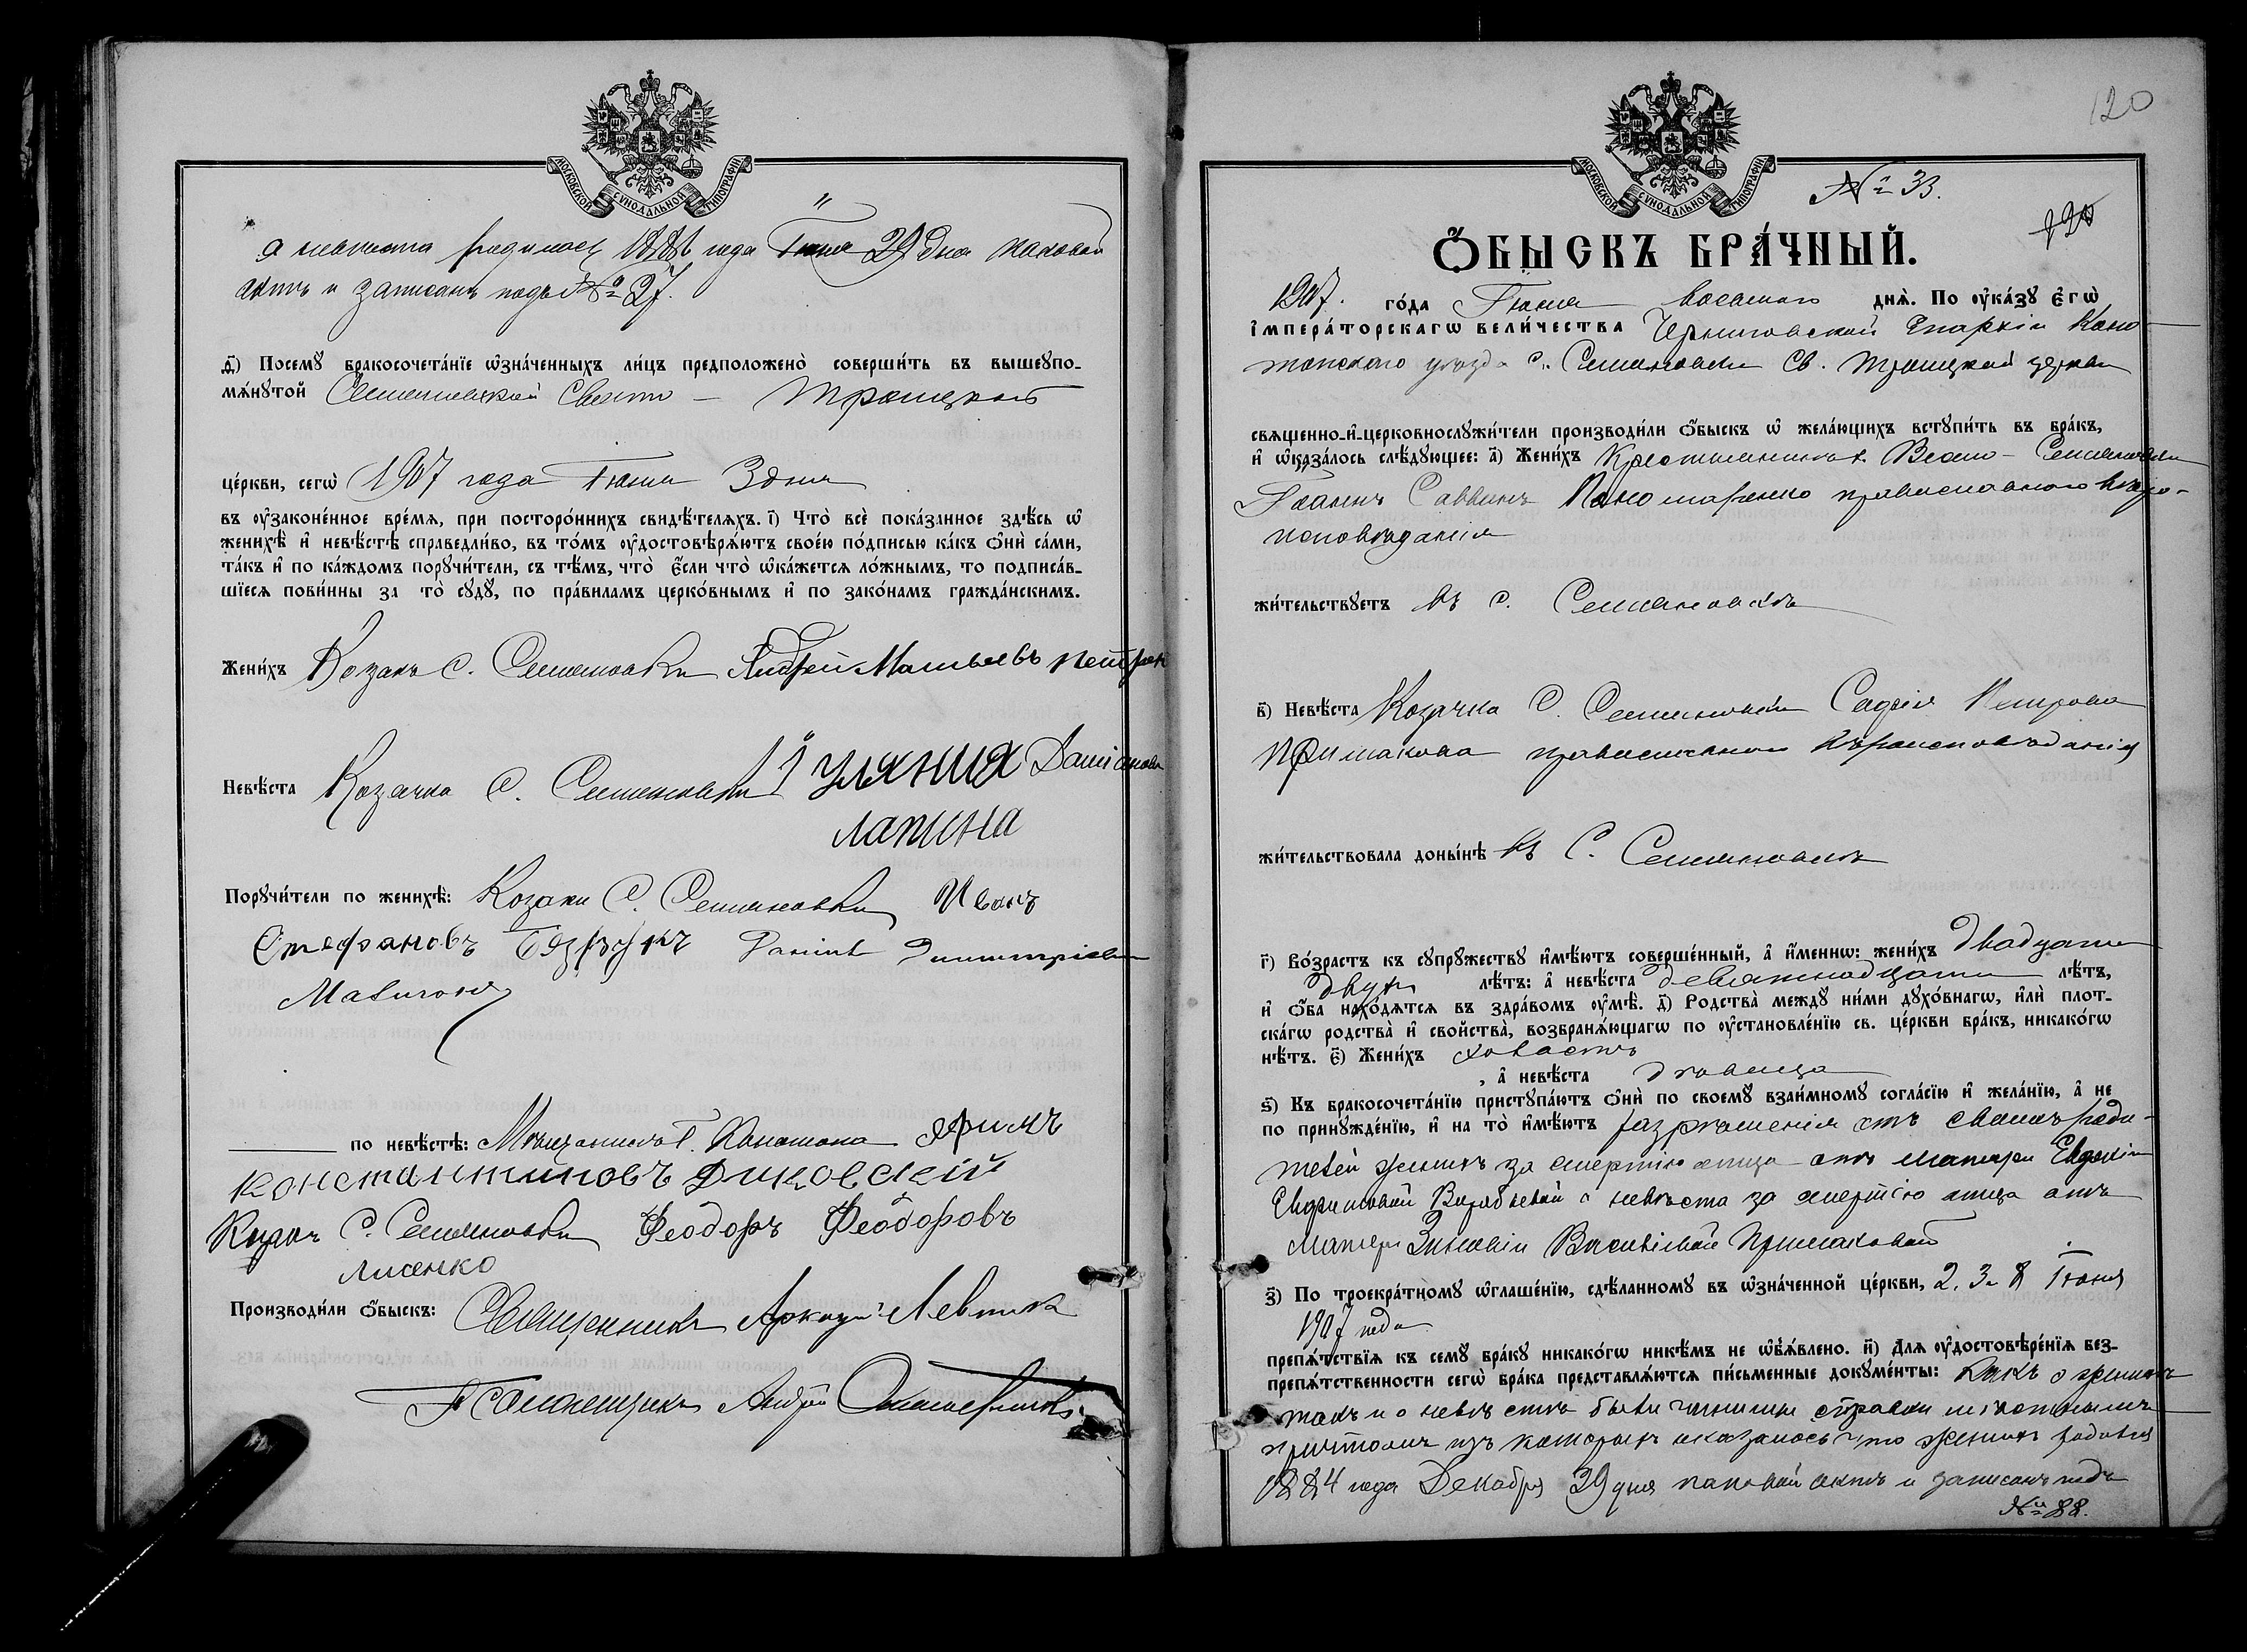 МОСКОВСКОЙ СѴНОДАЛЬНОЙ ТИПОГРАФІИ
а невѣста родилась 1886 года Іюня 29 дня каковой
актъ и записанъ подъ № 27.
д҃) Посемꙋ бракосочета́нїе ѡ҆зна́ченныхъ ли́цъ предположено̀ соверши́ть въ вышеупо-
мѧ́нꙋтой Семеновской Свято - Троицкой
це́ркви, сегѡ̀ 1907 года Іюня 3 дня
въ ᲂу҆законе́нное вре́мѧ, при посторо́ннихъ свидѣ́телѧхъ. і҃) Что̀ всѐ пока́занное здѣ́сь ѡ҆
женихѣ̀ и҆ невѣ́стѣ справедли́во, въ то́мъ ᲂу҆достовѣрѧ́ютъ свое́ю по́дписью ка́къ ѻ҆нѝ са́ми,
та́къ и҆ по ка́ждомъ порꙋчи́тели, съ тѣ́мъ, что̀ є҆́сли что̀ ѡ҆ка́жетсѧ ло́жнымъ, то подписа́в-
шїесѧ пови́нны за то̀ сꙋдꙋ̀, по пра́виламъ церко́внымъ и҆ по зако́намъ гражда́нскимъ.
Жени́хъ Козакъ с. Семеновки Андрей Матвеевъ
Невѣ́ста Козачка с. Семеновки Іуляния Даміанова
лапина
Порꙋчи́тели по женихѣ̀: Козаки с. Семеновки Иванъ
Стефановъ Даніилъ Димитріевъ
по невѣ́стѣ: Мѣщанинъ г. Конотопа Яфимъ
Константиновъ Диковский
Козакъ с. Семеновки Феодоръ Феодоровъ
Лисенко
Производи́ли ѻ҆́быскъ: Священникъ Аркадій Левицкій
Псаломщикъ Андрей
120
МОСКОВСКОЙ СѴНОДАЛЬНОЙ ТИПОГРАФІИ
№ 33.
120
Ѻ҆́БЫСКЪ БРА́ЧНЫЙ.
1907. го́да Іюня восьмого днѧ̀. По ᲂу҆ка́зꙋ є҆гѡ̀
і҆мпера́торскагѡ вели́чества Черниговской Епархіи Коно-
топскаго уѣзда с. Семеновки Св. Троицкой церкви
свѧщенно-и҆-церковнослꙋжи́тели производи́ли ѻ҆́быскъ ѡ҆ жела́ющихъ встꙋпи́ть въ бра́къ,
и҆ ѡ҆каза́лось слѣ́дꙋющее: а҃) Жени́хъ Крестьянинъ с. Семеновки
Іоаннъ Саввинъ Пономаренко православнаго вѣро-
исповѣданія
жи́тельствꙋетъ въ с. Семеновкѣ
в҃) Невѣ́ста Козачка с. Семеновки Софія Петрова
Примакова православнаго вѣроисповѣданія
жи́тельствовала доны́нѣ въ с. Семеновкѣ
г҃) Во́зрастъ къ сꙋпрꙋ́жествꙋ и҆мѣ́ютъ соверше́нный, а҆ и҆́менно: жени́хъ двадцати
двухъ лѣ́тъ: а҆ невѣ́ста девятнадцати лѣ́тъ,
и҆ ѻ҆́ба нахо́дѧтсѧ въ здра́вомъ ᲂу҆мѣ̀. д҃) Родства̀ междꙋ̀ ни́ми дꙋхо́внагѡ, и҆лѝ плот-
ска́гѡ родства̀ и҆ свойства̀, возбранѧ́ющагѡ по ᲂу҆становле́нїю св. це́ркви бра́къ, никако́гѡ
нѣ́тъ. є҃) Жени́хъ холостъ
, а҆ невѣ́ста дѣвица
ѕ҃) Къ бракосочета́нїю пристꙋпа́ютъ ѻ҆нѝ по своемꙋ̀ взаи́мномꙋ согла́сїю и҆ жела́нїю, а҆ не
по принꙋжде́нїю, и҆ на то̀ и҆мѣ́ютъ разрѣшенія отъ своихъ роди-
телей женихъ за смертію отца отъ матери Евдокіи
а невѣста за смертію отца отъ
матери Зиновіи Васильевой Примаковой
з҃) По троекра́тномꙋ ѡ҆глаше́нїю, сдѣ́ланномꙋ въ ѡ҆зна́ченной це́ркви, 2, 3 и 8 Іюня
1907 года
препѧ́тствїѧ къ семꙋ̀ бра́кꙋ никако́гѡ никѣ́мъ не ѡ҆б̾ѧ́влено. и҃) Длѧ ᲂу҆достовѣре́нїѧ без-
препѧ́тственности сегѡ̀ бра́ка представлѧ́ютсѧ пи́сьменные докꙋме́нты: какъ о женихѣ
такъ и о невѣстѣ были чинимы справки
причтомъ изъ которыхъ оказалось что женихъ родился
1884 года Декабря 29 дня каковой актъ и записанъ подъ
№ 88.